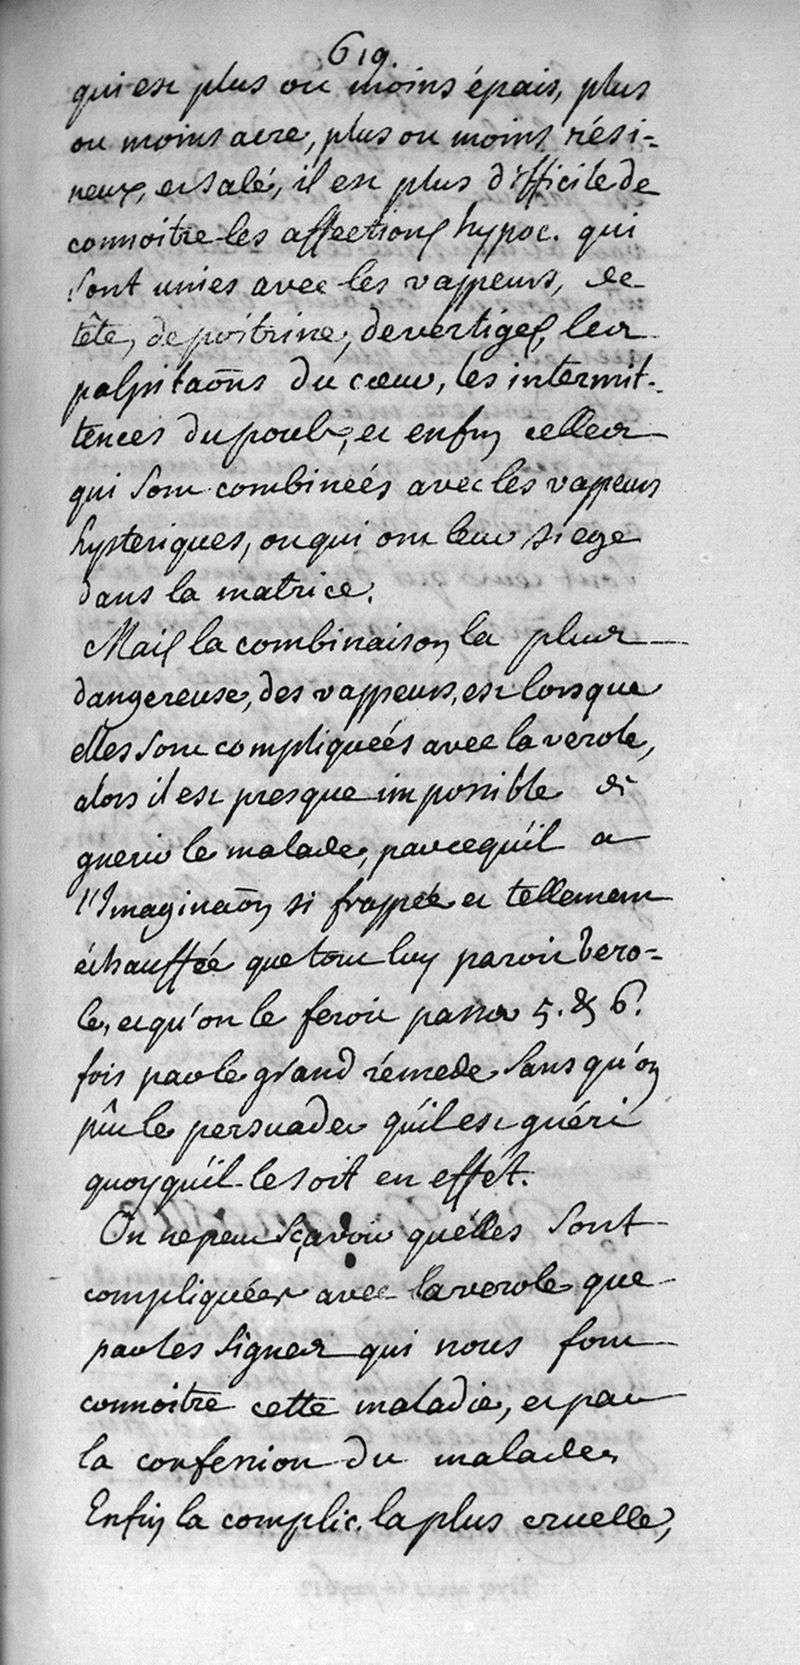 619.
qui est plus ou moins épais, plus
ou moins acre, plus ou moins rési=
neux, et salé, il est plus difficile de
connoitre les affections hypoc. qui
sont unies avec les vappeurs, de
tête, de poitrine, de vertiges, les
palpitaōns du cœur, les intermit-
tences du pouls, et enfin celles
qui sont combineés avec les vappeurs
hysteriques, ou qui ont leur siege
dans la matrice.
Mais la combinaison la plus
dangereuse, des vappeurs, est lorsque
elles sont compliqueés avec la verole,
alors il est presque impossible de
guerir le malade, parcequ'il a
l'Imaginaōn si frappée et tellement
échauffée que tout luy paroit vero=
le, et qu'on le feroit passer 5. & 6.
fois par le grand rémede sans qu'on
pût le persuader qu'il est guéri
quoyqu'il le soit en effét.
On ne peut sçavoir qu'elles sont
compliquées avec la verole que
par les signes qui nous font
connoitre cette maladie, et par
la confession du malade.
Enfin la complic. la plus cruelle,